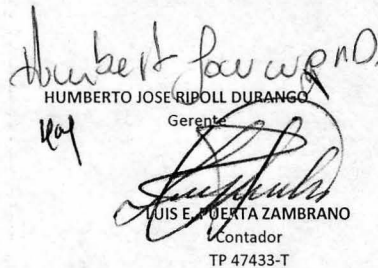 Humbert
HUMBERTO JOSE RIPOLL DURANGO
Gerente
LUIS E. PUERTA ZAMBRANO
Contador
TP 47433-T